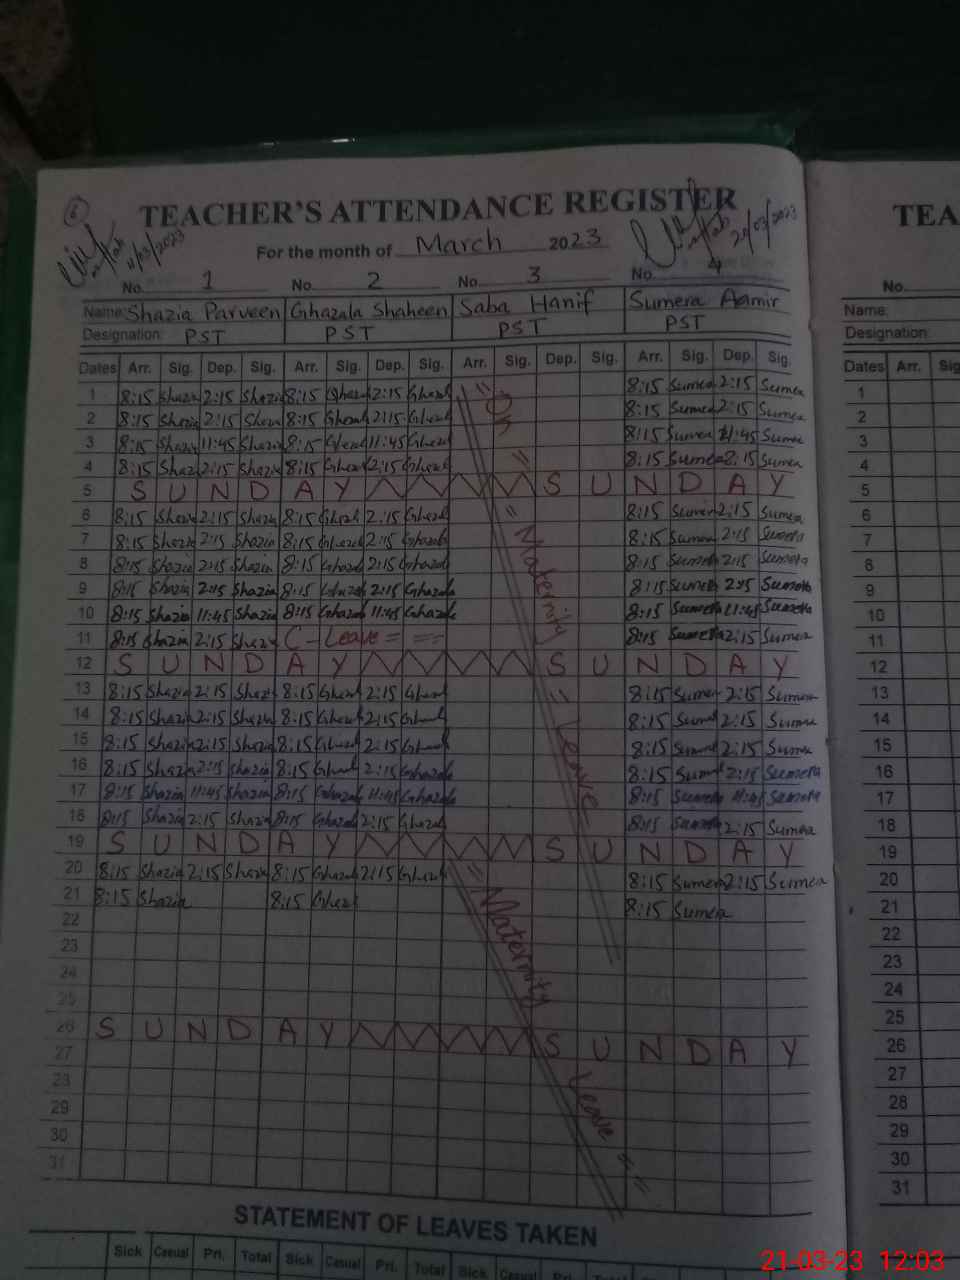 6
TEACHER'S ATTENDANCE REGISTER
TEA
11/03/2023
20/03/2023
For the month of March 2023
No. 1 No. 2 No. 3 No. 4
No.
Name: Shazia Parveen Ghazala Shaheen Saba Hanif Sumera Aamir
Name:
Designation: PST PST PST PST
Designation:
Dates Arr. Sig. Dep. Sig. Arr. Sig. Dep. Sig. Arr. Sig. Dep. Sig. Arr. Sig. Dep. Sig.
Dates Arr. Sig
1 8:15 Shazia 2:15 Shazia 8:15 Ghazal 2:15 Ghazal 8:15 Sumera 2:15 Sumera
2 8:15 Shazia 2:15 Shazia 8:15 Ghazal 2:15 Ghazal 8:15 Sumera 2:15 Sumera
3 8:15 Shazia 11:45 Shazia 8:15 Ghazal 11:45 Ghazal 8:15 Sumera 11:45 Sumera
4 8:15 Shazia 2:15 Shazia 8:15 Ghazal 2:15 Ghazal 8:15 Sumera 2:15 Sumera
5 S U N D A Y S U N D A Y
6 8:15 Shazia 2:15 Shazia 8:15 Ghazal 2:15 Ghazal 8:15 Sumera 2:15 Sumera
7 8:15 Shazia 2:15 Shazia 8:15 Ghazal 2:15 Ghazal 8:15 Sumera 2:15 Sumera
8 8:15 Shazia 2:15 Shazia 8:15 Ghazal 2:15 Ghazal 8:15 Sumera 2:15 Sumera
9 8:15 Shazia 2:15 Shazia 8:15 Ghazal 2:15 Ghazala 8:15 Sumera 2:15 Sumera
10 8:15 Shazia 11:45 Shazia 8:15 Ghazal 11:45 Ghazala 8:15 Sumera 11:45 Sumera
11 8:15 Shazia 2:15 Shazia C-Leave 8:15 Sumera 2:15 Sumera
12 S U N D A Y S U N D A Y
13 8:15 Shazia 2:15 Shazi 8:15 Ghazal 2:15 Ghazal 8:15 Sumera 2:15 Sumera
14 8:15 Shazia 2:15 Shazia 8:15 Ghazal 2:15 Ghazal 8:15 Sumera 2:15 Sumera
15 8:15 Shazia 2:15 Shazia 8:15 Ghazal 2:15 Ghazal 8:15 Sumera 2:15 Sumera
16 8:15 Shazia 2:15 Shazia 8:15 Ghazal 2:15 Ghazala 8:15 Sumera 2:15 Sumera
17 8:15 Shazia 11:45 Shazia 8:15 Ghazal 11:45 Ghazala 8:15 Sumera 11:45 Sumera
18 8:15 Shazia 2:15 Shazia 8:15 Ghazal 2:15 Ghazal 8:15 Sumera 2:15 Sumera
19 S U N D A Y S U N D A Y
20 8:15 Shazia 2:15 Shazia 8:15 Ghazal 2:15 Ghazal 8:15 Sumera 2:15 Sumera
21 8:15 Shazia 8:15 Ghazal 8:15 Sumera
22
23
24
25
26 S U N D A Y S U N D A Y
27
28
29
30
31
On Maternity Leave
Maternity Leave
1
2
3
4
5
6
7
8
9
10
11
12
13
14
15
16
17
18
19
20
21
22
23
24
25
26
27
28
29
30
31
STATEMENT OF LEAVES TAKEN
Sick Casual Pri. Total Sick Casual Pri. Total Sick Casual Pri. Total
21-03-23 12:03